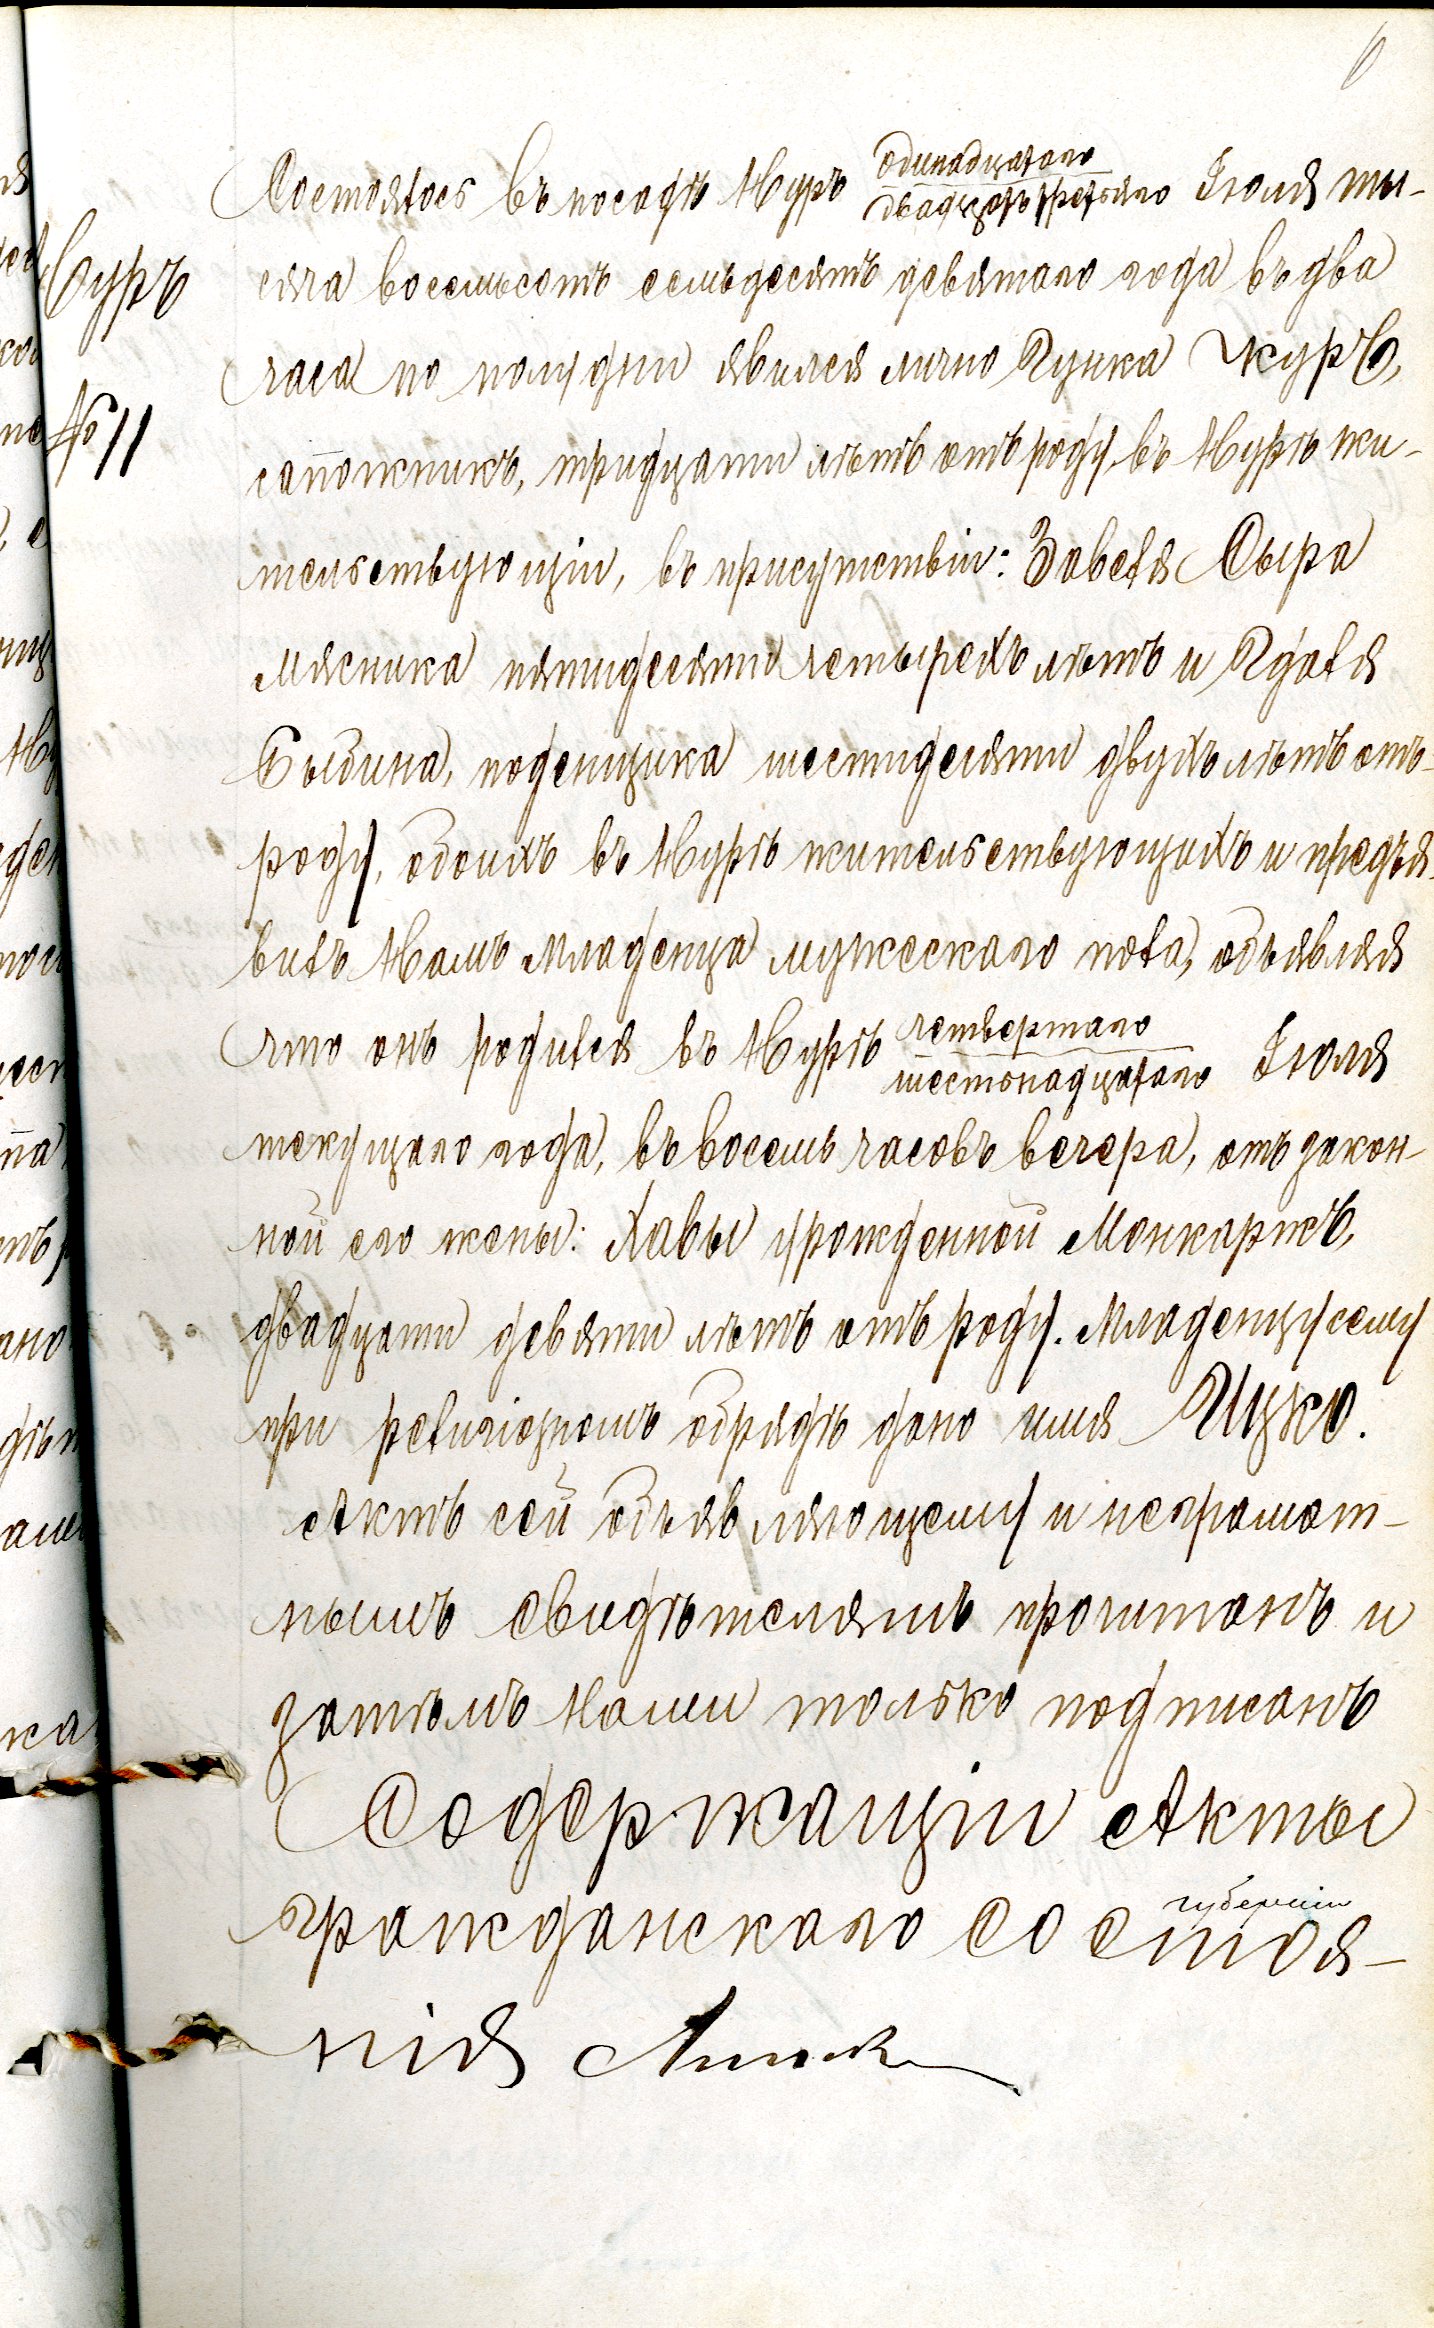 6
Нуръ
№ 11
Состоялось въ посадѣ Нуръ одинадцатаго
двадцать третьяго Іюля ты-
сяча восемьсотъ семьдесятъ девятаго года въ два
часа по полудни явился лично Ицка Журъ,
сапожникъ, тридцати лѣтъ отъ роду, въ Нурѣ жи-
тельствующій, въ присутствіи: Завеля Сыра
мясника пятидесяти четырехъ лѣтъ и Юделя
Былина, поденщика шестидесяти двухъ лѣтъ отъ
роду, обоихъ въ Нурѣ жительствующихъ и предъя-
вилъ Намъ младенца мужескаго пола, объявляя
что онъ родился въ Нурѣ четвертаго
шестнадцатаго Іюля
текущаго года, въ восемь часовъ вечера, отъ закон-
ной его жены: Хавы урожденной Монкаржъ,
двадцати девяти лѣтъ отъ роду. Младенцу сему
при религіозномъ обрядѣ дано имя Ицко.
Актъ сей объявляющему и неграмот-
нымъ свидѣтелямъ прочитанъ и
затѣмъ Нами только подписанъ
Содержащій Акты
гражданскаго состоя-
губерніи
нія